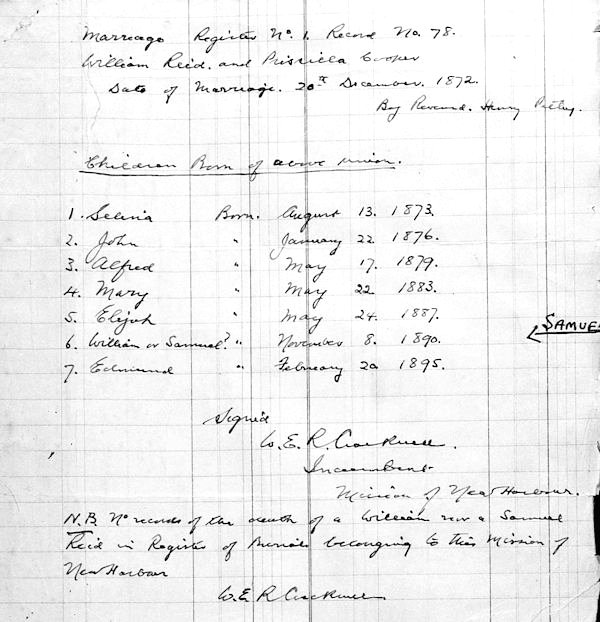 Marriage Register No. 1. Record No. 78.
William Reid. and Priscilla Cooper
Date of Marriage. 20th December. 1872.
By Reverend. Henry Petley.
Children Born of above union.
1. Selina Born. August 13. 1873.
2. John " January 22 1876.
3. Alfred " May 17. 1879.
4. Mary " May 22 1883.
5. Elijah " May 24. 1887.
6. William or Samuel? " November 8. 1890.
7. Edmund " February 20 1895.
SAMUEL
Signed
W. E. R. Cracknell.
Incumbent
Mission of New Harbour.
N.B. No records of the death of a William nor a Samuel
Reid in Register of Burials belonging to this Mission of
New Harbour
W. E. R Cracknell